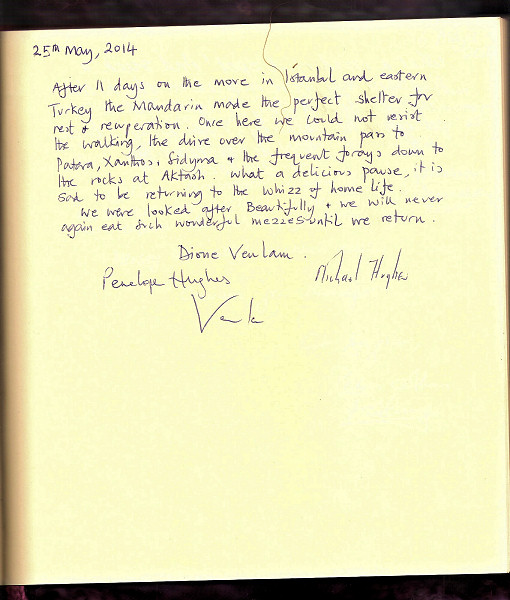 25TH May, 2014
After 11 days on the move in Istanbul and eastern
Turkey the Mandarin made the perfect shelter for
rest & recuperation. Once here we could not resist
the walking, the drive over the mountain pass to
Patara, Xanthos, Sidyma & the frequent forays down to
the rocks at Aktash. What a delicious pause, it is
sad to be returning to the whizz of home life.
We were looked after Beautifully & we will never
again eat such wonderful mezzes until we return.
Dione Verulam.
Penelope Hughes
Michael Hughes